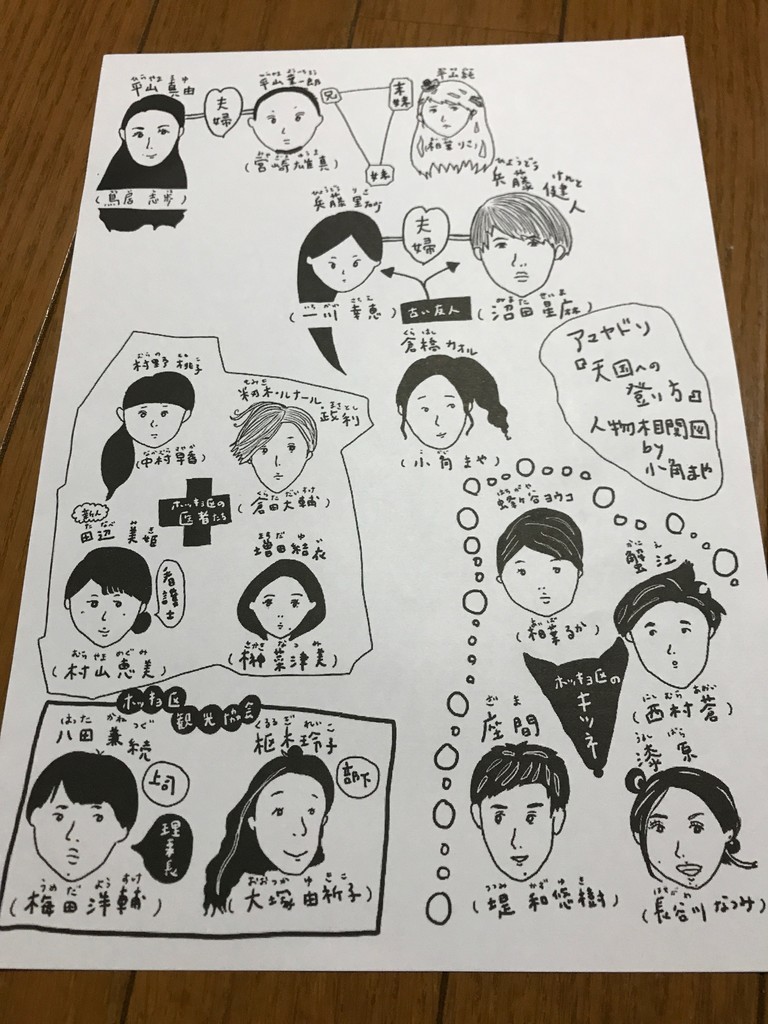 平山 真由
夫婦
平山 幸一郎
兄
末妹
妹
平山 純
(鳥居 志歩)
(宮崎 雄真)
(相葉りこ)
兵藤 里
夫婦
兵藤 健人
ひょうどう けんと
(一川 幸恵)
いちかわ さちえ
古い友人
(沼田 星麻)
ぬまた せいま
倉橋 カオル
くらはし
(小角 まや)
アマヤドリ
『天国への
登り方』
人物相関図
by
小角まや
村野 桃子
むらの ももこ
(中村 早香)
なかむら さやか
ルナール
政利
まさとし
(倉田 大輔)
くらた だいすけ
ホッキョ区の
医者たち
新人
田辺 美姫
たなべ
看護士
(村山 恵美)
むらやま めぐみ
増田 結衣
ますだ ゆい
(榊 菜津美)
さかき なつみ
蜂ヶ谷 ヨウコ
はちがや
(相葉るか)
あいば
蟹江
かにえ
(西村 蒼)
にしむら あおい
ホッキョ区の
キツネ
座間
ざま
(堤 和悠樹)
つつみ かずゆき
漆原
うるしはら
(長谷川 なつみ)
はせがわ
ホッキョ区
観光協会
八田 兼続
はった かねつぐ
上司
理事長
(梅田 洋輔)
うめだ ようすけ
枢木 玲子
くるるぎ れいこ
部下
(大塚 由祈子)
おおつか ゆきこ